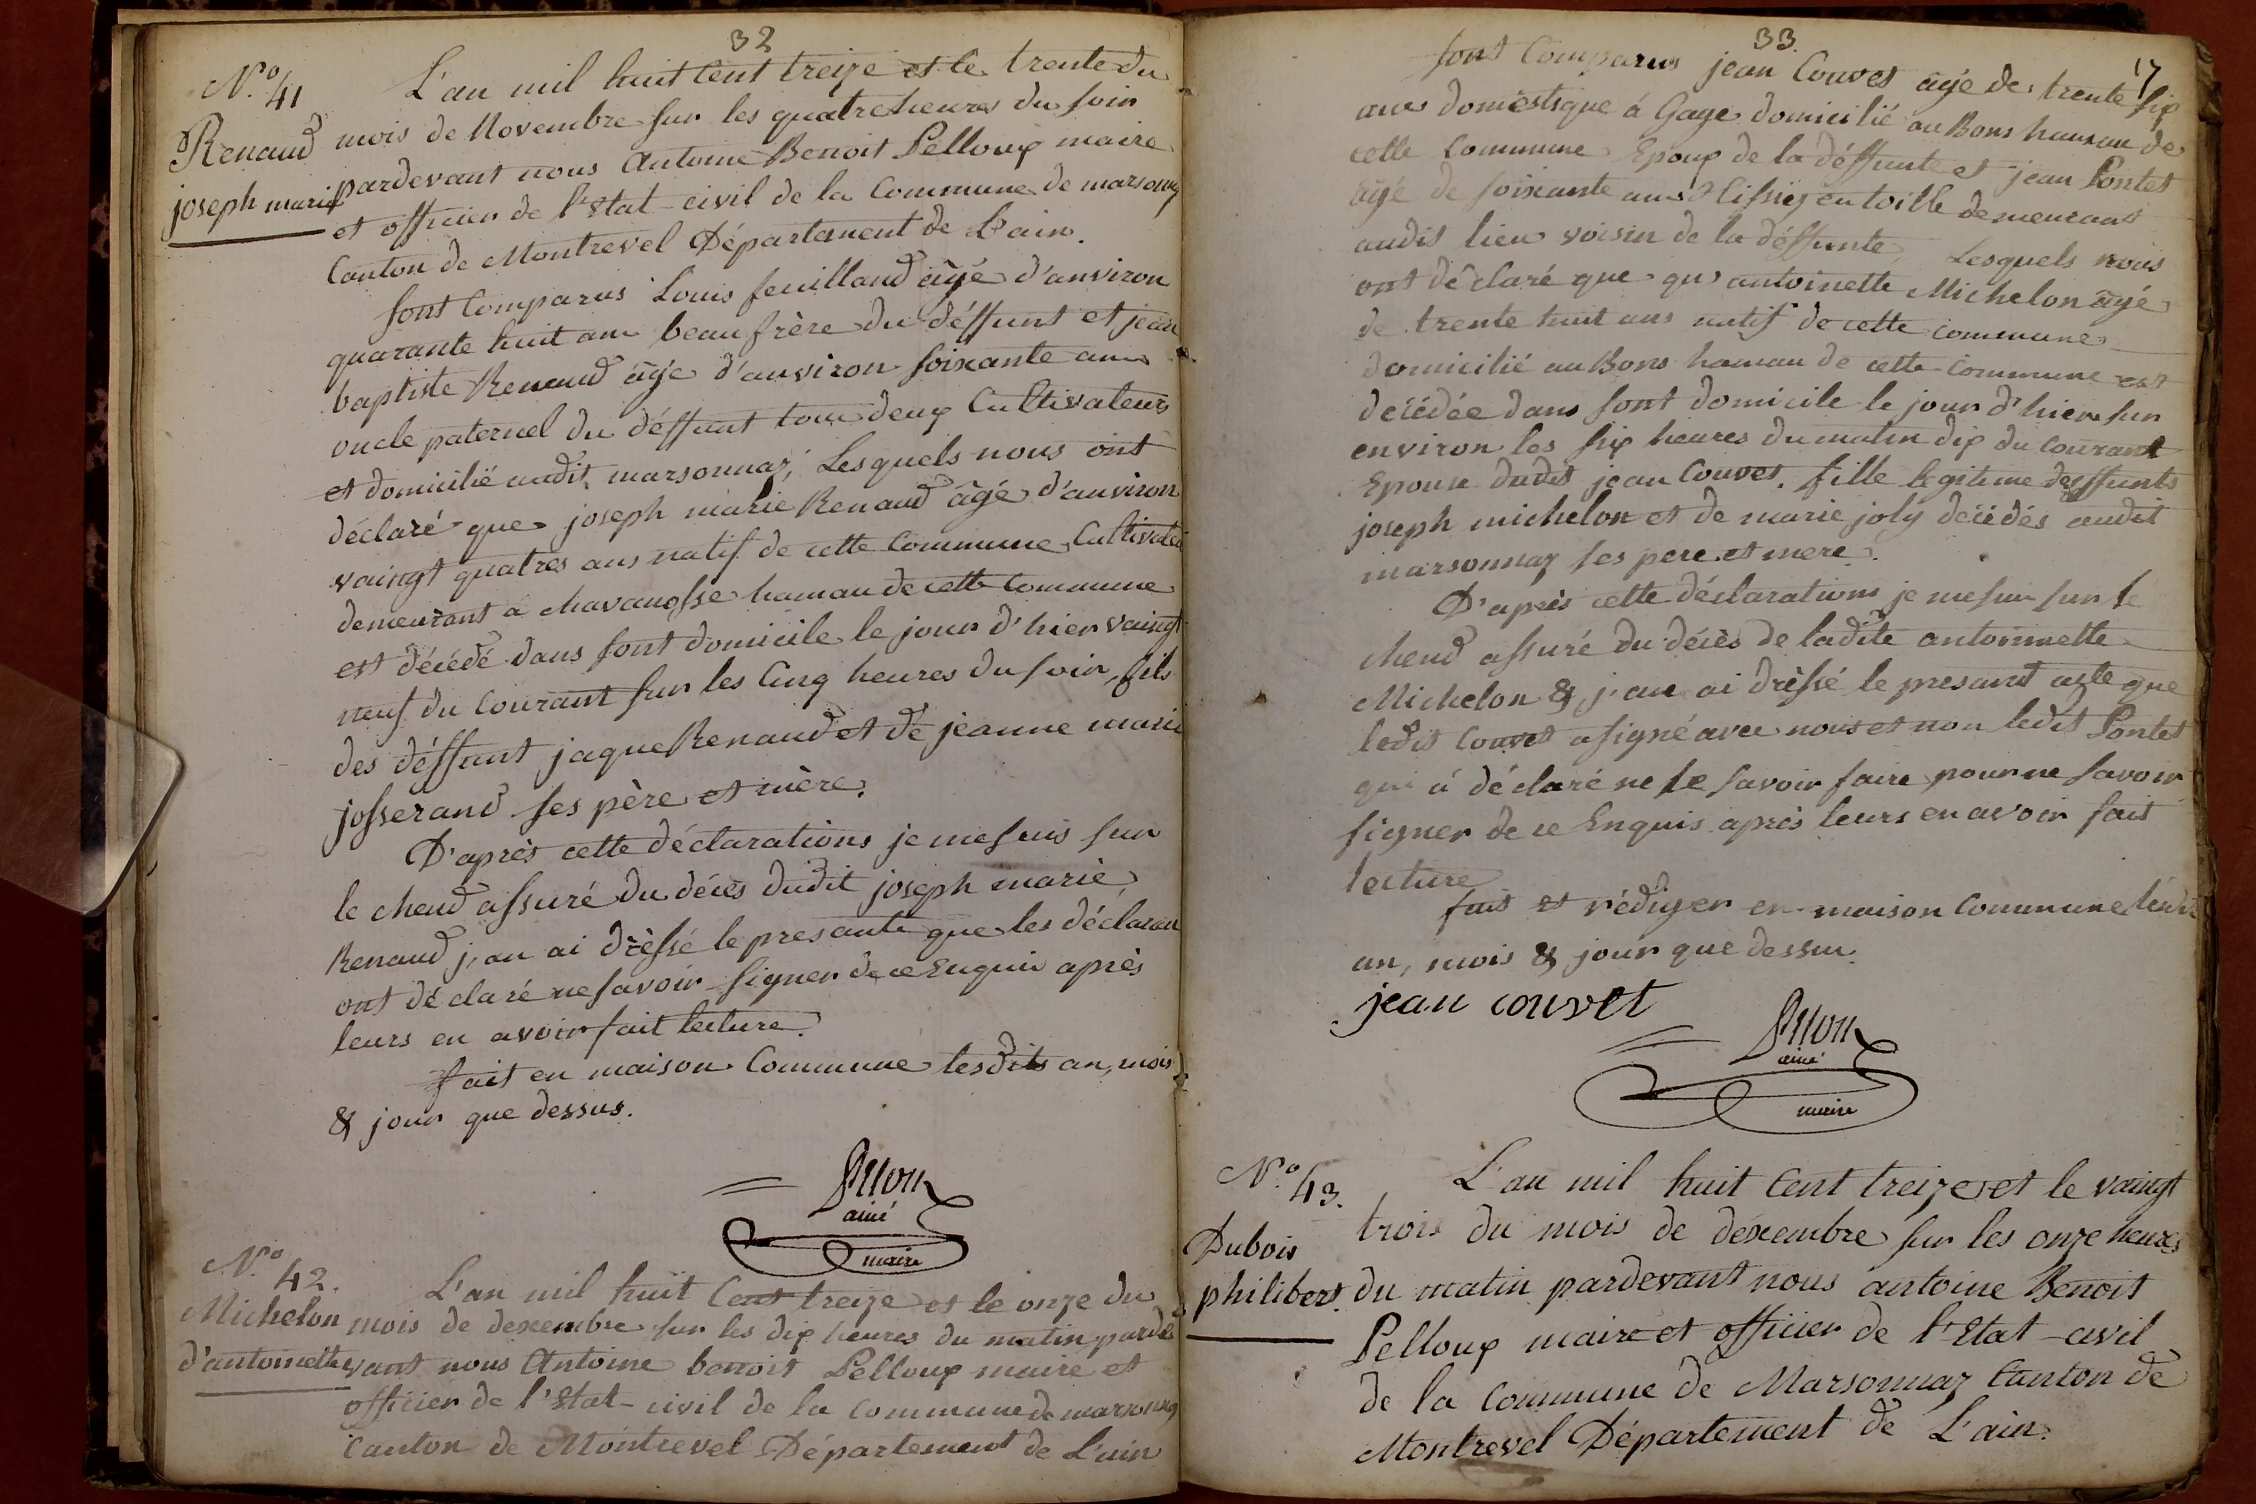 32
N.º 41
Renaud
joseph marie
L'an mil huit Cent treize et le trente du
mois de Novembre sur les quatre heures du soir
pardevant nous Antoine Benoit Pelloux maire
et officier de l'Etat-civil de la Commune de marsonnay
Canton de Montrevel Département de L'ain.
sont Comparus Louis feuilland âgé d'anviron
quarante huit ans beaufrère du déffunt et jean
baptiste Renaud âgé d'anviron soixante ans
oncle paternel du déffunt tous deux Cultivateurs
et domicilié audit marsonnaz, Lesquels nous ont
déclaré que joseph marie Renaud âgé d'anviron
vaingt quatres ans natif de cette Commune Cultivateu
demeurant à chavanosse hamau de cette Commune
est décédé dans sont domicile le jour d'hier vaingt
neuf du Courant sur les Cinq heures du soir, fils
des déffunt jaque Renaud et de jeanne marie
josserand ses père et mère.
D'après cette déclarations je me suis sur
le cheud assuré du décès dudit joseph marie
Renaud j, an ai drèssé le presante que les déclaran
ont déclaré ne savoir signer de ce Enquis après
leurs en avoir fait lecture.
fait en maison Commune lesdits an, mois
& jour que dessus.
ainé
maire
N.º 42.
Michelon
d'antoinette
L'an mil huit Cent treize et le onze du
mois de dexembre sur les dix heures du matin parde
vant nous Antoine benoit Pelloux maire et
officier de l'Etat-civil de la Commune de marsonnay
Canton de Montrevel Département de L'ain
33.
17
sont Comparus jean Couvet âgé de trente six
ans domestique á Gage domicilié au Bons hamau de
cette Commune Epoux de la déffunte et jean Pontet
âgé de soixante ans Tissier en toille demeurant
audit lieu voisin de la déffunte, Lesquels nous
ont déclaré que qu'antoinette Michelon âgé
de trente huit ans natif de cette commune
domicilié au Bons hamau de cette Commune est
décédée dans sont domicile le jour d'hier sur
environ les six heures du matin dix du courant
Epouse dudit jean Couvet. fille legitime deffunts
joseph michelon et de marie joly décédés audit
marsonnaz ses pere et mere.
D'après cette déclarations je me suis sur le
cheud assuré du décès de ladite antoinnette
Michelon & j, an ai drèssé le presant acte que
ledit Couvet a signé avec nous et non ledit Pontet
qui á déclaré ne le savoir faire pour ne savoir
signer de ce Enquis après leurs en avoir fait
lecture
fait et rédiger en maison Commune lesdit
an, mois & jour que dessus.
jean couvet
ainé
maire
N.º 43.
Dubois
philibert.
L'an mil huit Cent treize et le vaingt
trois du mois de dexembre sur les onze heures
du matin pardevant nous antoine Benoit
Pelloux maire et officier de l'Etat-civil
de la Commune de Marsonnaz Canton de
Montrevel Département de L'ain.